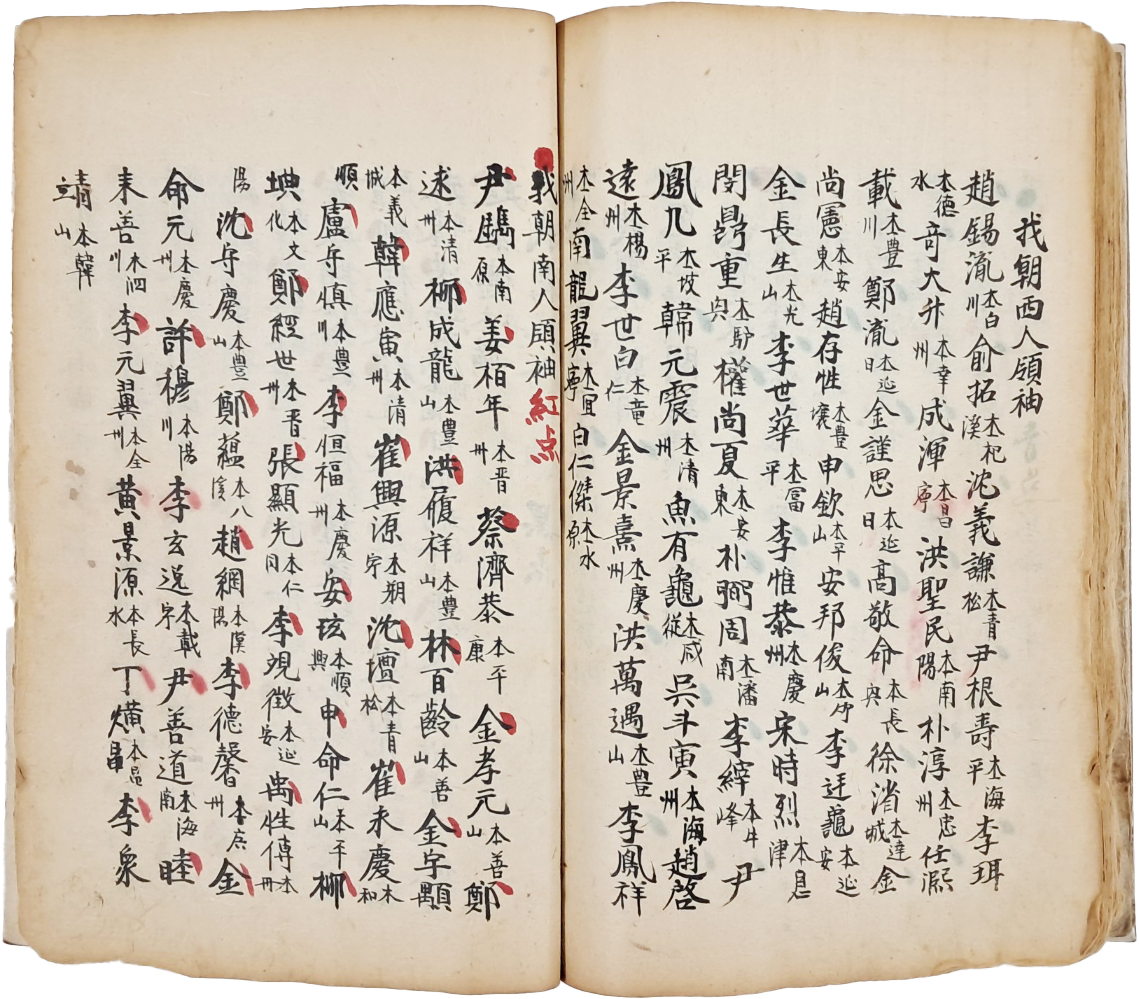 我朝西人領袖
趙錫胤本白川俞拓本杞溪沈義謙本青松尹根壽本海平李珥
本德水奇大升本幸州成渾本昌寧洪聖民本南陽朴淳本忠州任㵛
載本豊川鄭澈本延日金謹思本延日高敬命本長興徐渻本達城金
尚憲本安東趙存性本豊壤申欽本平山安邦俊本竹山李廷龜本延安
金長生本光山李世華本富平李惟泰本慶州宋時烈本恩津
閔鼎重本驪興權尚夏本安東朴弼周本潘南李縡本牛峰尹
鳳九本坡平韓元震本清州魚有龜本咸從吳斗寅本海州趙啓
遠本楊州李世白本竜仁金景熹本慶州洪萬遇本豊山李鳳祥
本全州南龍翼本宜寧白仁傑本水原
我朝南人領袖紅点
尹鐫本南原姜栢年本晋州蔡濟恭本平康金孝元本善山鄭
逑本清州柳成龍本豊山洪履祥本豊山林百齡本善山金宇顒
本義城韓應寅本清州崔興源本朔寧沈壇本青松崔永慶本和
順盧守慎本豊川李恒福本慶州安玹本順興申命仁本平山柳
㙉本文化鄭經世本晋州張顯光本仁同李觀徵本延安禹性傳本丹
陽沈守慶本豊山鄭蘊本八溪趙絅本漢陽李德馨本广州金
命元本慶州許穆本陽川李玄逸本載寧尹善道本海南睦
来善本泗川李元翼本全州黄景源本長水丁熿本昌李象
靖本韓山